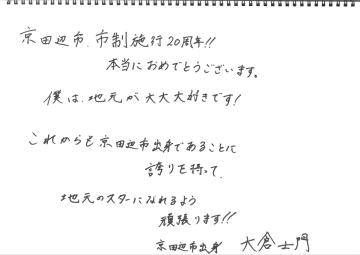 京田辺市、市制施行20周年!!
本当におめでとうございます。
僕は、地元が大大大好きです!
これからも京田辺市出身であることに
誇りを持って、
地元のスターになれるよう
頑張ります!!
京田辺市出身 大倉士門